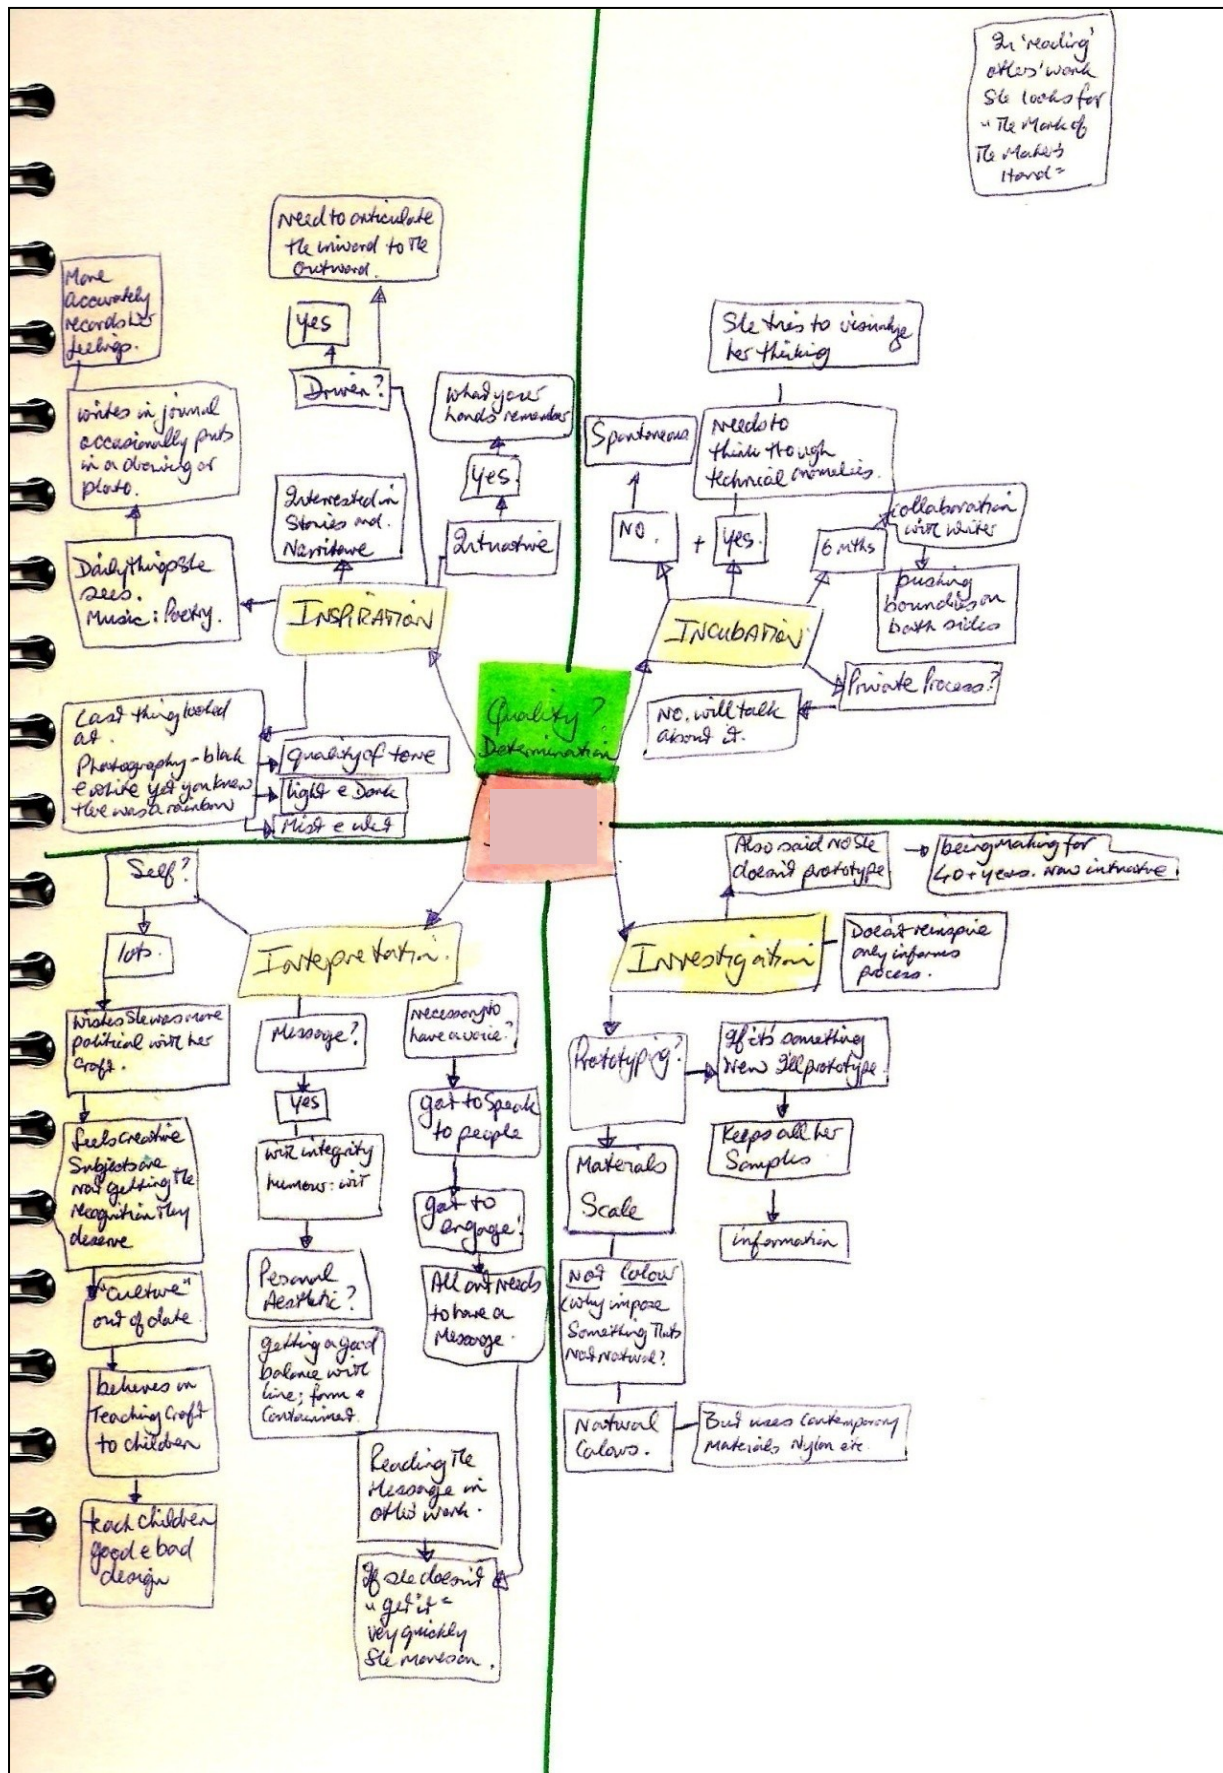 In 'reading'
others' work
She looks for
"The Mark of
The Makers
Hand"
Need to articulate
the inward to the
Outward.
More
accurately
records her
feelings.
yes
Driven?
what your
hands remember
yes.
Intuative
writes in journal
occasionally puts
in a drawing or
photo.
Interested in
Stories and
Narritave
Daily things she
sees.
Music: Poetry.
INSPIRATION
Last thing looked
at.
Photography - black
e white yet you knew
there was a rainbow
quality of tone
light e Dark
Mist e wet
She tries to visualize
her thinking
Spontaneous
Needs to
think though
technical anomalies.
NO.
+
yes.
6 mths
collaboration
with writer
pushing
boundies on
both sides
INCUBATION
Private Process?
NO. will talk
about it.
Quality?
Determination
Self?
lots.
wishes she was more
political with her
Craft.
feels creative
Subjects are
not getting the
recognition they
deserve
"culture"
out of date.
believes in
Teaching Craft
to children
teach children
good e bad
design
Intepretation.
Message?
yes
with integrity
humour: wit
Pesonal
Aesthetic?
getting a good
balance with
line; form e
Contained.
necessary to
have a voice?
got to Speak
to people
got to
engage!
All art needs
to have a
Message.
Reading the
Message in
other work.
If she doesn't
"get it"
very quickly
She moves on.
Also said no she
doesn't prototype
being making for
40+ years. Now intuative.
Investigation
Doesn't reinspire
only informs
process.
Prototyping?
If it's something
new I'll prototype.
Keeps all her
Samples.
information
Materials
Scale
Not Colour
(why impose
Something thats
Not Natural?
Natural
Colours.
But uses Contemporary
Materials Nylon etc.